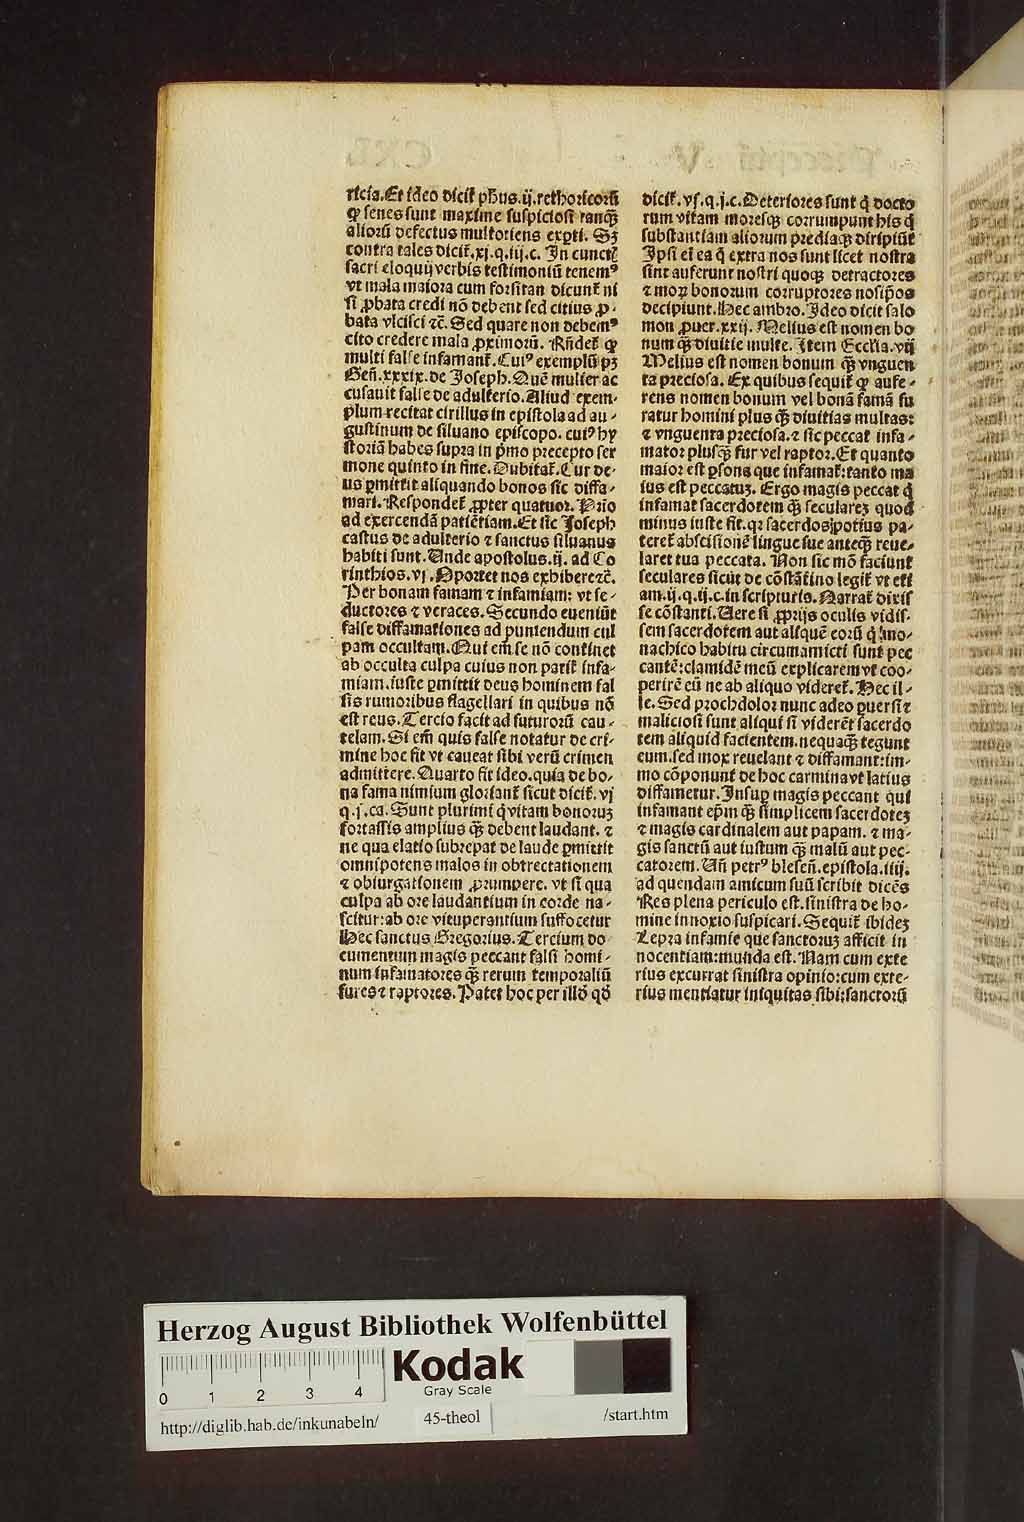 ricia. Et ideo dicit͛ ph̄us. ij. rethoricoꝝ
ꝙ senes sunt maxime suspiciosi tanqꝫ
alioꝝ defectus multotiens exꝑti. Sꝫ
contra tales dicit͛. xj. q. iij. c. In cunct
sacri eloquij verbis testimoniū tenemꝰ
vt mala maiora cum forsitan dicunt͛ ni
si ꝓbata credi nō debent sed citius ꝓ-
bata vlcisci ⁊c̄. Sed quare non debemꝰ
cito credere mala ꝓximorū. Rn̄det͛ ꝙ
multi false infamant͛. Cuiꝰ exemplū pꝫ
Gen̄. xxxix. de Joseph. Quē mulier ac
cusauit false de adulterio. Aliud exem-
plum recitat cirillus in epistola ad au-
gustinum de siluano episcopo. cuiꝰ hy
storiā habes supra in p̄mo precepto ser
mone quinto in fine. Dubitat͛. Cur de-
us ꝑmittit aliquando bonos sic diffa-
mari. Respondet͛ ꝓpter quatuor. Prīo
ad exercendā patiētiam. Et sic Joseph
castus de adulterio ⁊ sanctus siluanus
habiti sunt. Unde apostolus. ij. ad Co
rinthios. vj. Oportet nos exhibere ⁊c̄.
Per bonam famam ⁊ infamiam: vt se-
ductores ⁊ veraces. Secundo eueniūt
false diffamationes ad puniendum cul
pam occultam. Qui em̄ se nō continet
ab occulta culpa cuius non patit͛ infa-
miam. iuste ꝑmittit deus hominem fal
sis rumoribus flagellari in quibus nō
est reus. Tercio facit ad futurorū cau-
telam. Si em̄ quis false notatur de cri-
mine hoc fit vt caueat sibi verū crimen
admittere. Quarto fit ideo. quia de bo-
na fama nimium gloriant͛ sicut dicit͛. vj
q. j. ca. Sunt plurimi q̇ vitam bonoruꝫ
fortassis amplius qꝫ debent laudant. ⁊
ne qua elatio subrepat de laude ꝑmittit
omnipotens malos in obtrectationem
⁊ obiurgationem ꝓrumpere. vt si qua
culpa ab ore laudantium in corde na-
scitur: ab ore vituperantium suffocetur
Hec sanctus Gregorius. Tercium do
cumentum magis peccant falsi homi-
num infamatores qꝫ rerum temporaliū
fures ⁊ raptores. Patet hoc per illō qō
dicit͛. vj. q. j. c. Deteriores sunt q̇ docto
rum vitam moresqꝫ corrumpunt his q̇
substantiam aliorum prediaqꝫ diripiūt
Ipsi ei ea q̄ extra nos sunt licet nostra
sint auferunt nostri quoqꝫ detractores
⁊ moꝝ bonorum corruptores nosip̄os
decipiunt. Hec ambro. Ideo dicit salo
mon ꝓuer. xxij. Melius est nomen bo
num qꝫ diuitie multe. Item Eccl̄ia. vij
Melius est nomen bonum qꝫ vnguen
ta preciosa. Ex quibus sequit͛ ꝙ aufe-
rens nomen bonum vel bonā famā fu
ratur homini plus qꝫ diuitias multas:
⁊ vnguenta preciosa. ⁊ sic peccat infa-
mator plusqꝫ fur vel raptor. Et quanto
maior est ꝑsona que infamat͛: tanto ma
ius est peccatuꝫ. Ergo magis peccat q̇
infamat sacerdotem qꝫ seculareꝫ quod
minus iuste fit. qꝛ sacerdos potius pa-
teret͛ abscisionē lingue sue anteqꝫ reue-
laret tua peccata. Non sic mō faciunt
seculares sicut de cōstātino legit͛ vt eti
am. ij. q. ij. c. in scripturis. Narrat͛ dixis
se cōstanti. Uere si ꝓprijs oculis vidis-
sem sacerdotem aut aliquē eorū q̇ mo-
nachico habitu circumamicti sunt pec
cantē: clamidē meū explicarem vt coo-
perirē eū ne ab aliquo videret͛. Hec il-
le. Sed prochdolor nunc adeo ꝑuersi ⁊
maliciosi sunt aliqui si viderēt sacerdo
tem aliquid facientem. nequaqꝫ tegunt
eum. sed mox reuelant ⁊ diffamant: im-
mo cōponunt de hoc carmina vt latius
diffametur. Insuꝑ magis peccant qui
infamant ep̄m qꝫ simplicem sacerdoteꝫ
⁊ magis cardinalem aut papam. ⁊ ma-
gis sanctū aut iustum qꝫ malū aut pec-
catorem. Un̄ petrꝰ blesen̄. epistola. iiij.
ad quendam amicum suū scribit dicēs
Res plena periculo est. sinistra de ho-
mine innoxio suspicari. Sequit͛ ibideꝫ
Lepra infamie que sanctoruꝫ afficit in
nocentiam: munda est. Nam cum exte
rius excurrat sinistra opinio: cum exte-
rius mentiatur iniquitas sibi: sanctorū
Herzog August Bibliothek Wolfenbüttel
0 1 2 3 4
Kodak
Gray Scale
http://diglib.hab.de/inkunabeln/ 45-theol /start.htm